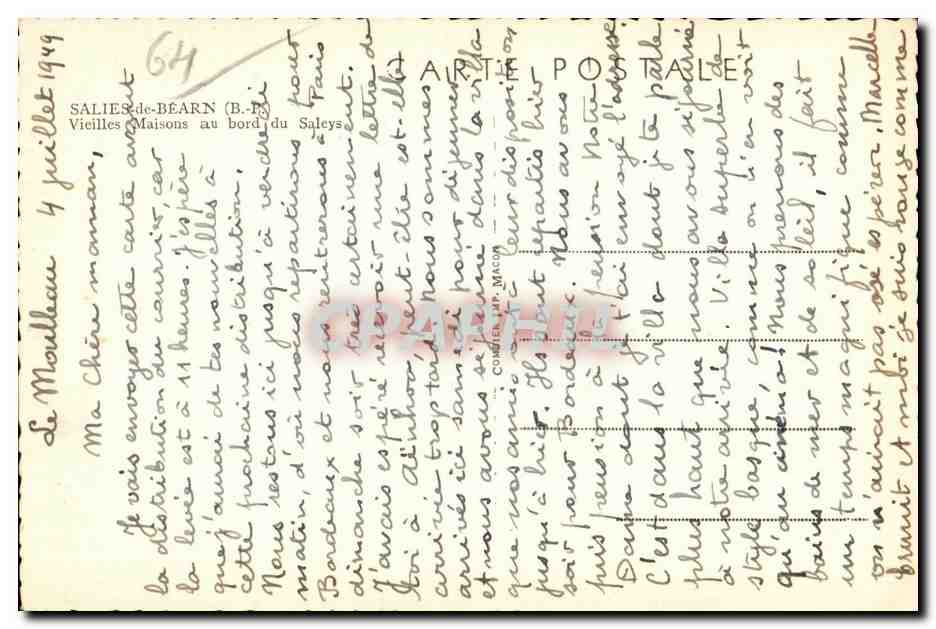 64
CARTE POSTALE
SALIES-de-BÉARN (B.-P.)
Vieilles Maisons au bord du Saleys
COMBIER IMP. MACON
CPAPHIL
Le Moulleau 4 juillet 1949
Ma chère maman,
Je vais envoyer cette carte avant
la distribution du courrier, car
la levée est à 11 heures. J'espère
que j'aurai de tes nouvelles à
cette prochaine distribution.
Nous restons ici jusqu'à vendredi
matin, d'où nous repartirons pour
Bordeaux et nous rentrerons à Paris
dimanche soir très certainement.
J'avais espéré recevoir une lettre de
toi à Aïnhoa, peut-être est-elle
arrivée trop tard. Nous sommes
arrivés ici samedi pour déjeuner
et nous avons séjourné dans la villa
que nos amis ont à leur disposition
jusqu'à hier. Ils sont repartis hier
soir pour Bordeaux. Nous avons
pris pension à la pension Notre
Dame dont je t'ai envoyé l'adresse.
C'est dans la villa dont je te parle
plus haut que nous avons séjourné
à notre arrivée. Villa superbe de
style basque, comme on n'en voit
qu'au cinéma! Nous prenons des
bains de mer et de soleil, il fait
un temps magnifique comme
on n'aurait pas osé espérer. Marcelle
brunit et moi je suis rouge comme